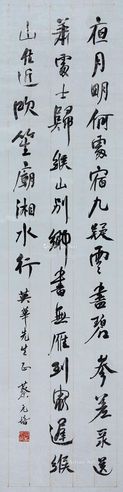 夜月明何處宿九疑雲盡碧參差送
蕭處士歸緱山別鄉書無雁到家遲緱
山住近吹笙廟湘水行 英華先生正 蔡元培